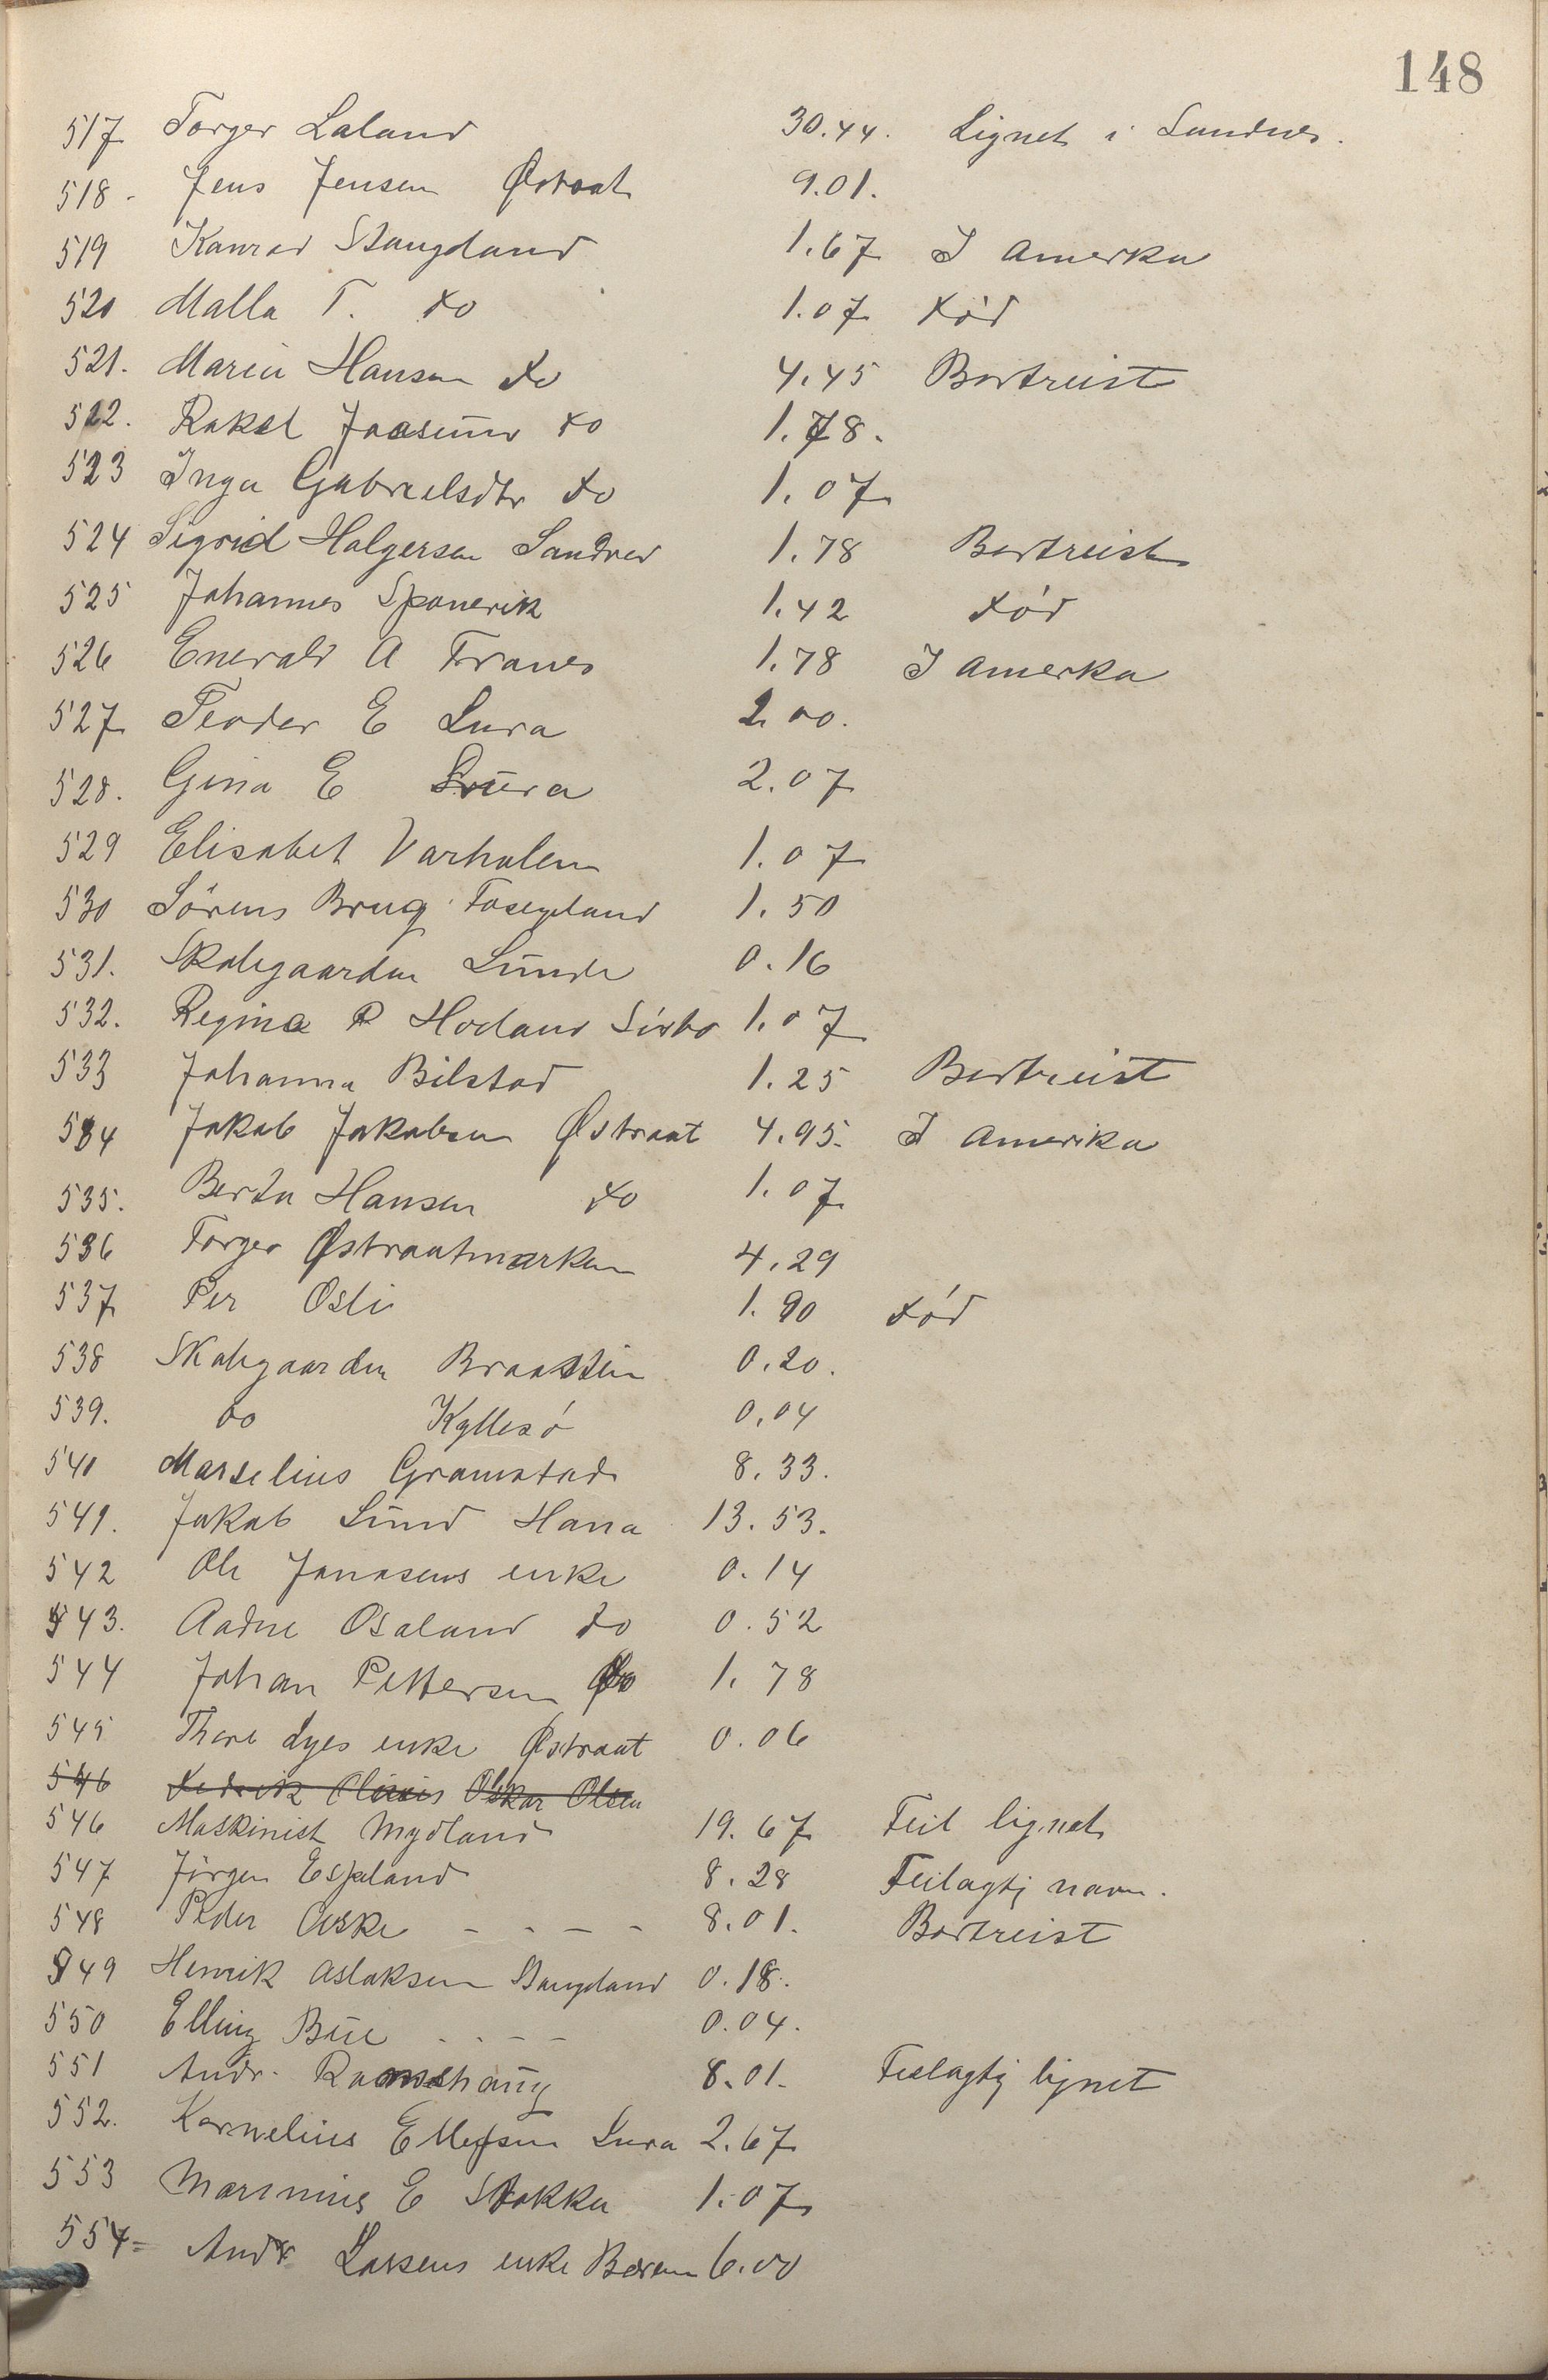 148
517 Torger Laland 30.44. Lignet i Sandnes.
518. Jens Jensen Østraat 9.01.
519 Konrad Stangeland 1.67 I Amerka
520 Malla T. do 1.07 død
521. Maria Hansen do 4.45 Bortreist
522. Rakel do 1.78.
523 Inga Gabrielsdtr do 1.07
524 Sigrid Holgersen Sandnes 1.78 Bortreist
525 Johannes 1.42 død
526 Enevald A Tranes 1.78 I Amerka
527 Teodor E Lura 2.00.
528. Gina E Lura 2.07
529 Elisabet Varhalen 1.07
530 Sörens Brug 1.50
531. Skolegaarden Lunde 0.16
532. Regina R Hodland Sörbo 1.07
533 Johanna Bilstad 1.25 Bortreist
534 Jakob Jakobsen Østraat 4.95. I Amerika
535. Berta Hansen do 1.07
536 Torger Østraatmarken 4.29
537 Per Osli 1.90 død
538 Skolegaarden Braastein 0.20.
539. do Kyllesö 0.04
540 Marselius Gramstad 8.33.
541. Jakob Lund Hana 13.53.
542 Ole Jonasens enke 0.14
543. Aadne Osaland do 0.52
544 Johan Pettersen do 1.78
545 Thore Lyes enke Østraat 0.06
546 Oskar Olsen
546 Maskinist Mydland 19.67 Feil lignet
547 Jörgen Espeland 8.28 Feilagtig navn.
548 Peder Aske - - - - 8.01. Bortreist
549 Henrik Aslaksen Stangeland 0.18.
550 Elling Bue - - - - 0.04.
551 Andr. 8.01. Feilagtig lignet
552. Kornelius Ellefsen Lura 2.67
553 Marsinius E Stokka 1.07
554= Andr Larsens enke 6.00